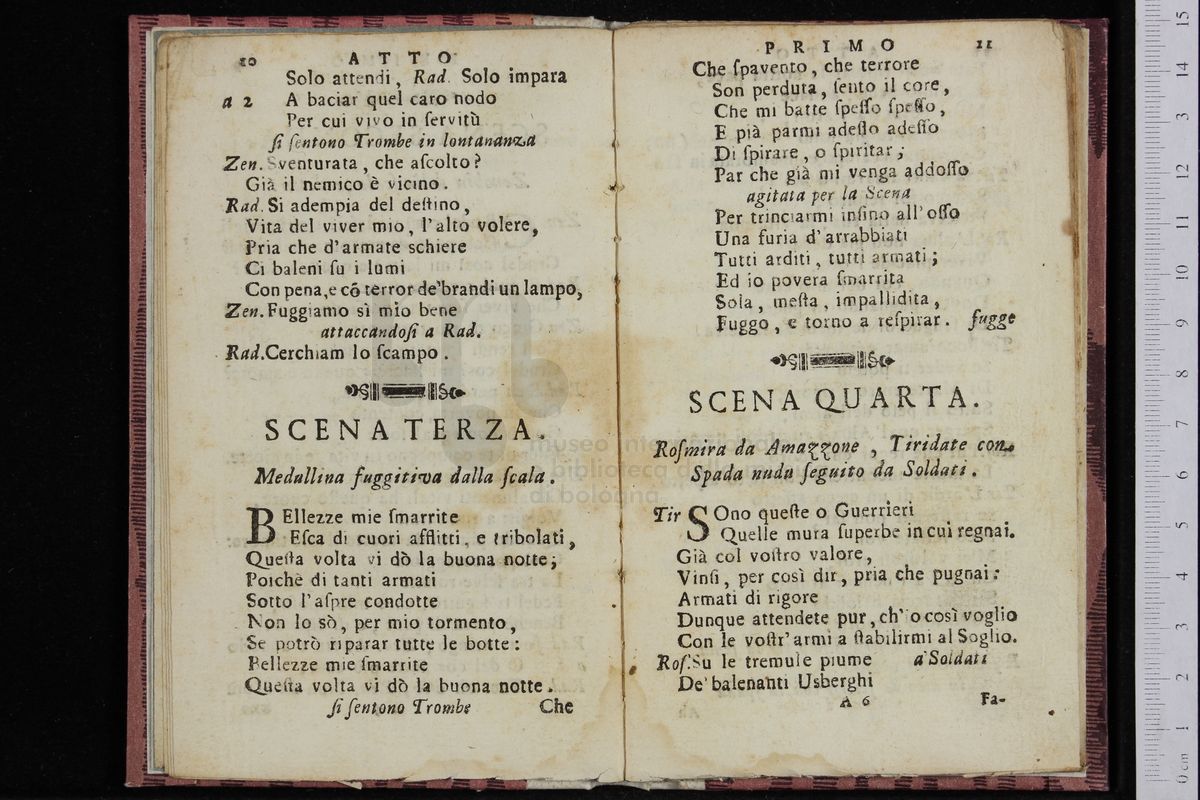 10 ATTO
Solo attendi, Rad. Solo impara
a 2 A baciar quel caro nodo
Per cui vivo in servitù
ſi ſentono Trombe in lontananza
Zen. Sventurata, che aſcolto?
Già il nemico è vicino.
Rad. Si adempia del deſtino,
Vita del viver mio, l'alto volere,
Pria che d'armate schiere
Ci baleni ſu i lumi
Con pena, e cõ terror de' brandi un lampo,
Zen. Fuggiamo sì mio bene
attaccandoſi a Rad.
Rad. Cerchiam lo ſcampo.
SCENA TERZA.
Medullina fuggitiva dalla ſcala.
BEllezze mie ſmarrite
Eſca di cuori afflitti, e tribolati,
Queſta volta vi dò la buona notte;
Poichè di tanti armati
Sotto l'aſpre condotte
Non lo sò, per mio tormento,
Se potrò riparar tutte le botte:
Bellezze mie ſmarrite
Queſta volta vi dò la buona notte.
ſi ſentono Trombe Che
PRIMO 11
Che ſpavento, che terrore
Son perduta, ſento il core,
Che mi batte ſpeſſo ſpeſſo,
E pià parmi adeſſo adeſſo
Di ſpirare, o ſpiritar;
Par che già mi venga addoſſo
agitata per la Scena
Per trinciarmi inſino all'oſſo
Una furia d'arrabbiati
Tutti arditi, tutti armati;
Ed io povera ſmarrita
Sola, meſta, impallidita,
Fuggo, e torno a reſpirar. fugge
SCENA QUARTA.
Roſmira da Amazzone, Tiridate con
Spada nuda ſeguito da Soldati.
Tir SOno queſte o Guerrieri
Quelle mura ſuperbe in cui regnai.
Già col voſtro valore,
Vinſi, per così dir, pria che pugnai:
Armati di rigore
Dunque attendete pur, ch'io così voglio
Con le voſtr'armi a ſtabilirmi al Soglio.
Roſ. Su le tremule piume a Soldati
De' balenanti Usberghi
A 6 Fa-
museo internazionale
biblioteca della musica
di bologna